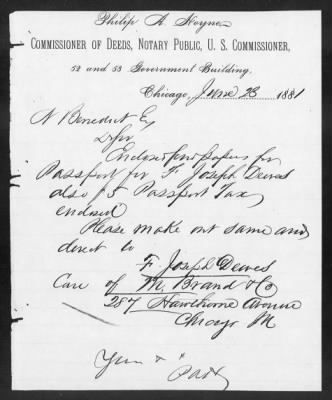 Philip A. Hoyne,
COMMISSIONER OF DEEDS, NOTARY PUBLIC, U. S. COMMISSIONER,
52 and 53 Government Building.
Chicago, June 23 1881
N Benedict Esq
D Sir
Enclosed find papers for
Passport for F Joseph Dewes
also $5 Passport Tax
enclosed
Please make out same and
direct to
F Joseph Dewes
Care of M. Brand & Co
287 Hawthorne Avenue
Chicago Ill
Yours